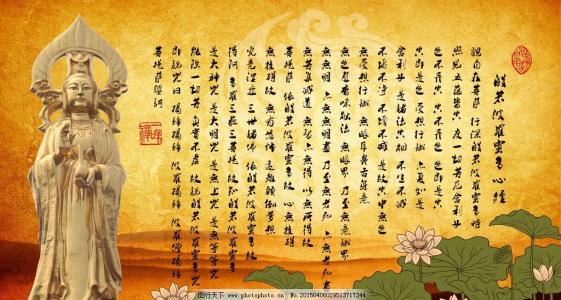 般若波羅蜜多心經
觀自在菩薩 行深般若波羅蜜多時
照見五蘊皆空 度一切苦厄 舍利子
色不異空 空不異色 色即是空
空即是色 受想行識 亦復如是
舍利子 是諸法空相 不生不滅
不垢不淨 不增不減 是故空中無色
無受想行識 無眼耳鼻舌身意
無色聲香味觸法 無眼界 乃至無意識界
無無明 亦無無明盡 乃至無老死 亦無老死盡
無苦集滅道 無智亦無得 以無所得故
菩提薩埵 依般若波羅蜜多故 心無罣礙
無罣礙故 無有恐怖 遠離顛倒夢想
究竟涅槃 三世諸佛 依般若波羅蜜多故
得阿耨多羅三藐三菩提 故知般若波羅蜜多
是大神咒 是大明咒 是無上咒 是無等等咒
能除一切苦 真實不虛 故說般若波羅蜜多咒
即說咒曰 揭諦揭諦 波羅揭諦 波羅僧揭諦
菩提薩婆訶
图行天下 www.photophoto.cn No.20150406029513717344